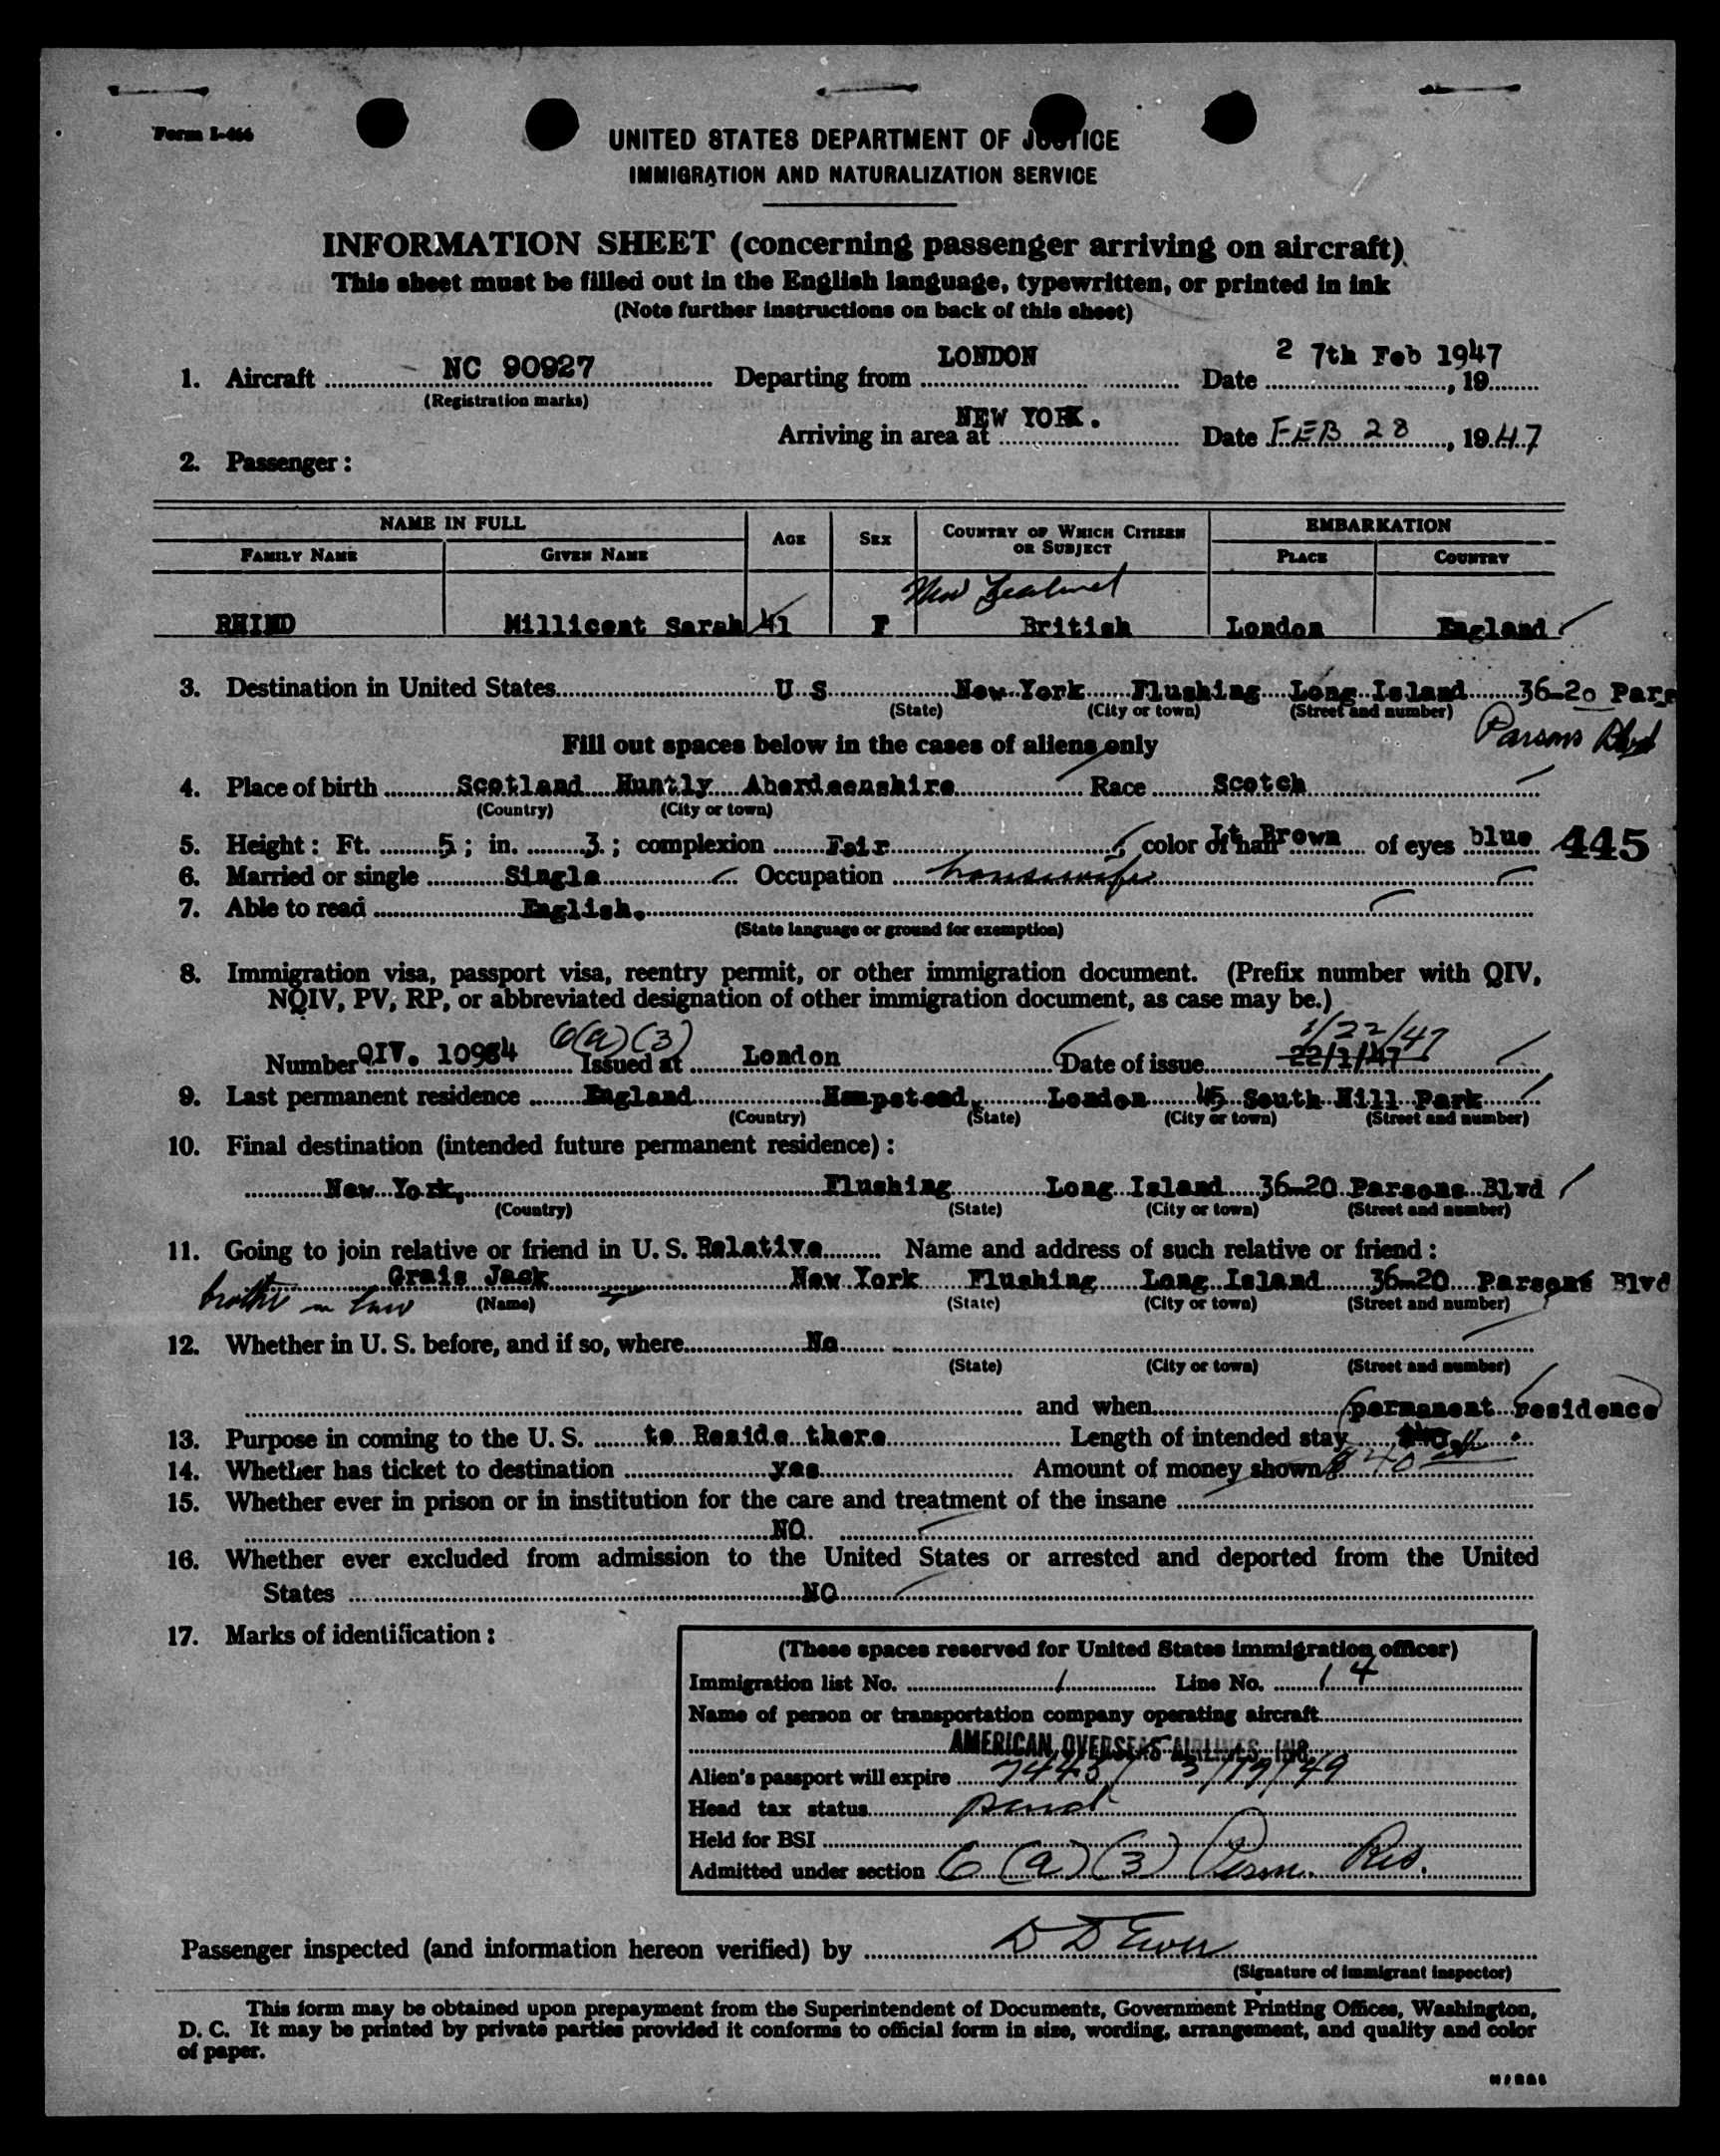 Form I-466
UNITED STATES DEPARTMENT OF JUSTICE
IMMIGRATION AND NATURALIZATION SERVICE
INFORMATION SHEET (concerning passenger arriving on aircraft)
This sheet must be filled out in the English language, typewritten, or printed in ink
(Note further instructions on back of this sheet)
1. Aircraft NC 90927 Departing from LONDON Date 2 7th Feb 1947, 19
(Registration marks)
Arriving in area at NEW YORK. Date FEB 28, 1947
2. Passenger:
NAME IN FULL AGE SEX COUNTRY OF WHICH CITIZEN OR SUBJECT EMBARKATION
FAMILY NAME GIVEN NAME PLACE COUNTRY
New Zealand
RHIND Millicent Sarah 41 F British London England
3. Destination in United States U S New York Flushing Long Island 36-20 Pars
(State) (City or town) (Street and number)
Parsons Blvd
Fill out spaces below in the cases of aliens only
4. Place of birth Scotland Huntly Aberdeenshire Race Scotch
(Country) (City or town)
5. Height: Ft. 5; in. 3; complexion Fair; color of hair Lt Brown of eyes blue 445
6. Married or single Single Occupation housewife
7. Able to read English.
(State language or ground for exemption)
8. Immigration visa, passport visa, reentry permit, or other immigration document. (Prefix number with QIV,
NQIV, PV, RP, or abbreviated designation of other immigration document, as case may be.)
6(a)(3) 1/22/47
Number QIV. 10984 Issued at London Date of issue 22/1/47
9. Last permanent residence England Hampstead, London 45 South Hill Park
(Country) (State) (City or town) (Street and number)
10. Final destination (intended future permanent residence):
New York, Flushing Long Island 36-20 Parsons Blvd
(Country) (State) (City or town) (Street and number)
11. Going to join relative or friend in U. S. Relative Name and address of such relative or friend:
Grais Jack New York Flushing Long Island 36-20 Parsons Blvd
brother in law (Name) (State) (City or town) (Street and number)
12. Whether in U. S. before, and if so, where No
(State) (City or town) (Street and number)
and when permanent residence
13. Purpose in coming to the U. S. to Reside there Length of intended stay
14. Whether has ticket to destination yes Amount of money shown $ 40
15. Whether ever in prison or in institution for the care and treatment of the insane
NO.
16. Whether ever excluded from admission to the United States or arrested and deported from the United
States NO
17. Marks of identification:
(These spaces reserved for United States immigration officer)
Immigration list No. 1 Line No. 14
Name of person or transportation company operating aircraft
AMERICAN OVERSEAS AIRLINES, INC.
Alien's passport will expire 74451 3/19/49
Head tax status pend
Held for BSI
Admitted under section 6 (a) (3) Perm. Res.
Passenger inspected (and information hereon verified) by D D
(Signature of immigrant inspector)
This form may be obtained upon prepayment from the Superintendent of Documents, Government Printing Offices, Washington,
D. C. It may be printed by private parties provided it conforms to official form in size, wording, arrangement, and quality and color
of paper.